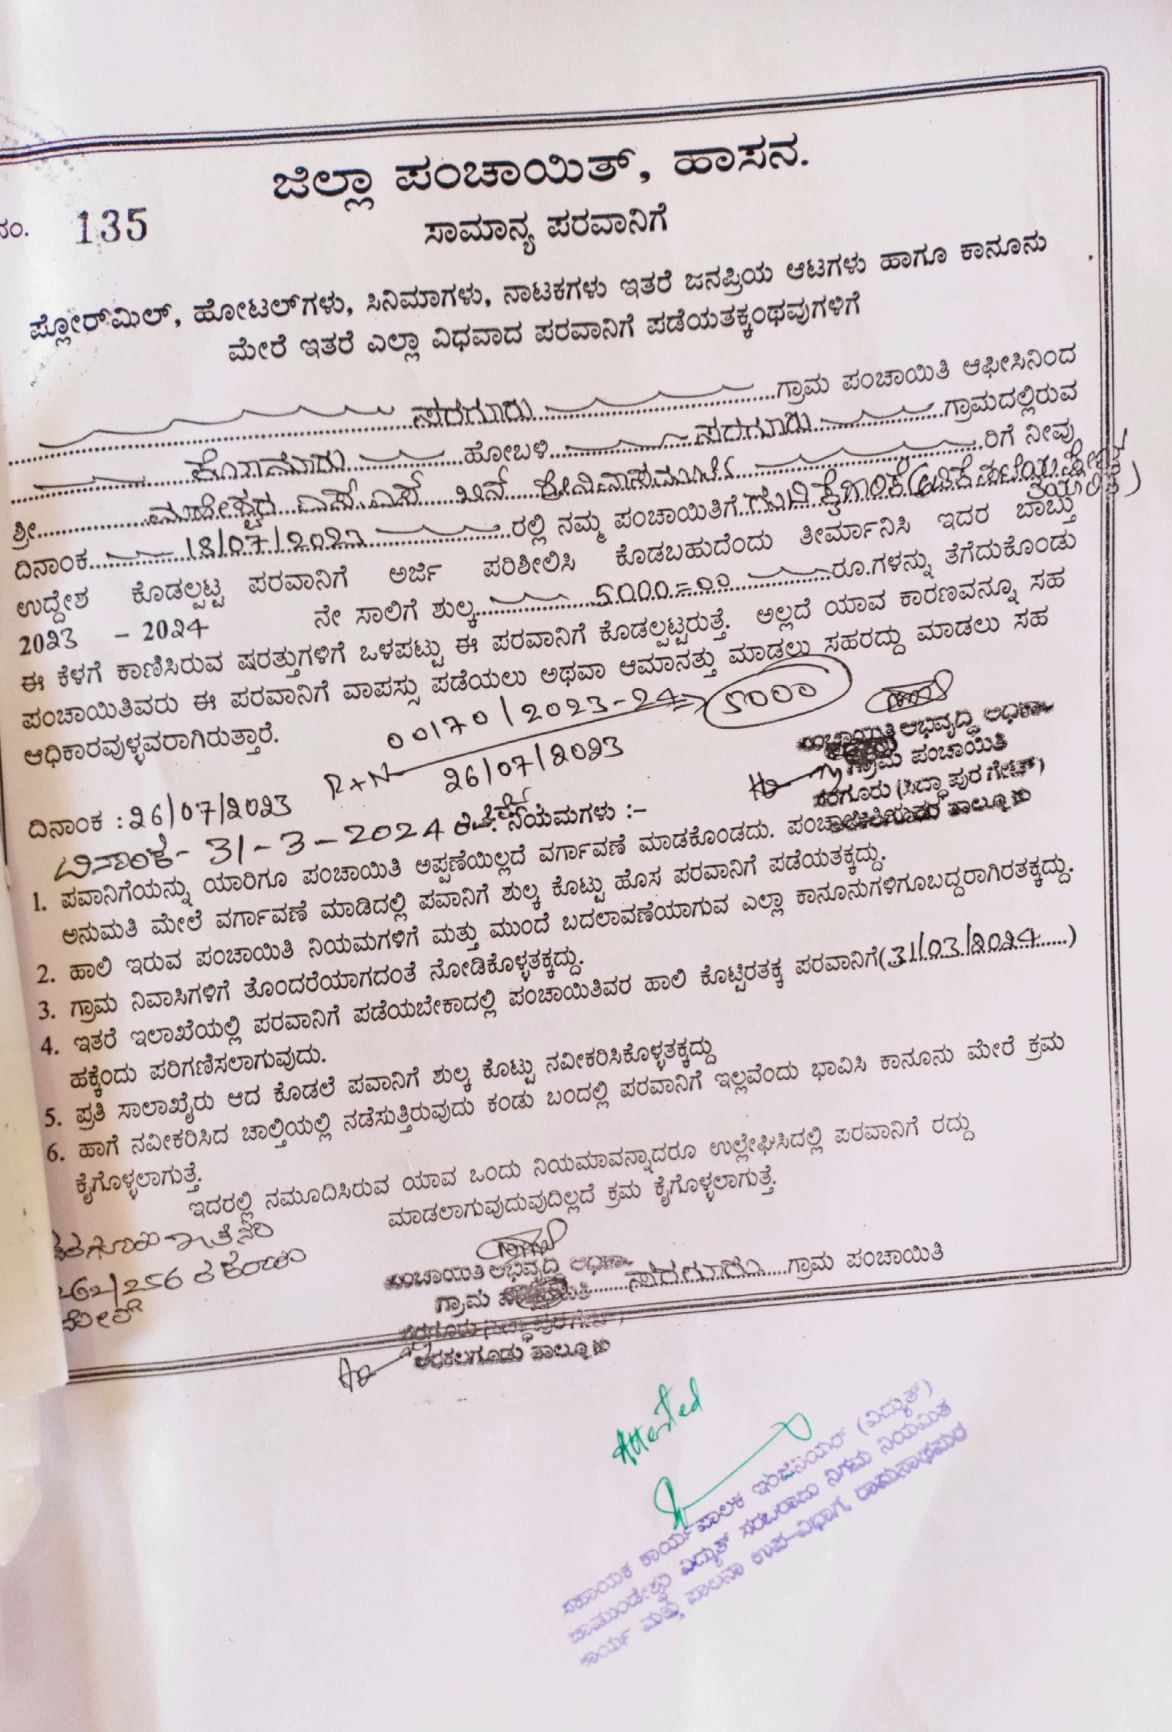 ಜಿಲ್ಲಾ ಪಂಚಾಯಿತ್, ಹಾಸನ.
ನಂ. 135
ಸಾಮಾನ್ಯ ಪರವಾನಿಗೆ
ಫ್ಲೋರ್‌ಮಿಲ್, ಹೋಟಲ್‌ಗಳು, ಸಿನಿಮಾಗಳು, ನಾಟಕಗಳು ಇತರೆ ಜನಪ್ರಿಯ ಆಟಗಳು ಹಾಗೂ ಕಾನೂನು
ಮೇರೆ ಇತರೆ ಎಲ್ಲಾ ವಿಧವಾದ ಪರವಾನಿಗೆ ಪಡೆಯತಕ್ಕಂಥವುಗಳಿಗೆ
ಸರಗೂರು ಗ್ರಾಮ ಪಂಚಾಯಿತಿ ಆಫೀಸಿನಿಂದ
ಹೋಬಳಿ ಸರಗೂರು ಗ್ರಾಮದಲ್ಲಿರುವ
ಶ್ರೀ ಮಹೇಶ್ಚರ ಎಸ್.ಎಸ್ ಬಿನ್ ಶ್ರೀನಿವಾಸಮೂರ್ತಿ ರಿಗೆ ನೀವು
ದಿನಾಂಕ 18/07/2023 ರಲ್ಲಿ ನಮ್ಮ ಪಂಚಾಯಿತಿಗೆ
ಉದ್ದೇಶ ಕೊಡಲ್ಪಟ್ಟ ಪರವಾನಿಗೆ ಅರ್ಜಿ ಪರಿಶೀಲಿಸಿ ಕೊಡಬಹುದೆಂದು ತೀರ್ಮಾನಿಸಿ ಇದರ ಬಾಬ್ತು
2023 - 2024 ನೇ ಸಾಲಿಗೆ ಶುಲ್ಕ 5000=00 ರೂ.ಗಳನ್ನು ತೆಗೆದುಕೊಂಡು
ಈ ಕೆಳಗೆ ಕಾಣಿಸಿರುವ ಷರತ್ತುಗಳಿಗೆ ಒಳಪಟ್ಟು ಈ ಪರವಾನಿಗೆ ಕೊಡಲ್ಪಟ್ಟರುತ್ತೆ. ಅಲ್ಲದೆ ಯಾವ ಕಾರಣವನ್ನೂ ಸಹ
ಪಂಚಾಯಿತಿವರು ಈ ಪರವಾನಿಗೆ ವಾಪಸ್ಸು ಪಡೆಯಲು ಅಥವಾ ಆಮಾನತ್ತು ಮಾಡಲು ಸಹರದ್ದು ಮಾಡಲು ಸಹ
ಆಧಿಕಾರವುಳ್ಳವರಾಗಿರುತ್ತಾರೆ.
00170/2023-24 5000
26/07/2023
ಪಂಚಾಯಿತಿ ಅಭಿವೃದ್ಧಿ ಅಧಿಕಾರಿ
ಗ್ರಾಮ ಪಂಚಾಯಿತಿ
ಸರಗೂರು (ಸಿದ್ದಾಪುರ ಗೇಟ್)
ಅರಕಲಗೂಡು ತಾಲ್ಲೂಕು
ದಿನಾಂಕ : 26/07/2023
ದಿನಾಂಕ- 31-3-2024 ನಿಯಮಗಳು :-
1. ಪವಾನಿಗೆಯನ್ನು ಯಾರಿಗೂ ಪಂಚಾಯಿತಿ ಅಪ್ಪಣೆಯಿಲ್ಲದೆ ವರ್ಗಾವಣೆ ಮಾಡಕೊಂಡದು. ಪಂಚಾಯಿತಿಯವರ
ಅನುಮತಿ ಮೇಲೆ ವರ್ಗಾವಣೆ ಮಾಡಿದಲ್ಲಿ ಪವಾನಿಗೆ ಶುಲ್ಕ ಕೊಟ್ಟು ಹೊಸ ಪರವಾನಿಗೆ ಪಡೆಯತಕ್ಕದ್ದು.
2. ಹಾಲಿ ಇರುವ ಪಂಚಾಯಿತಿ ನಿಯಮಗಳಿಗೆ ಮತ್ತು ಮುಂದೆ ಬದಲಾವಣೆಯಾಗುವ ಎಲ್ಲಾ ಕಾನೂನುಗಳಿಗೂಬದ್ದರಾಗಿರತಕ್ಕದ್ದು.
3. ಗ್ರಾಮ ನಿವಾಸಿಗಳಿಗೆ ತೊಂದರೆಯಾಗದಂತೆ ನೋಡಿಕೊಳ್ಳತಕ್ಕದ್ದು.
4. ಇತರೆ ಇಲಾಖೆಯಲ್ಲಿ ಪರವಾನಿಗೆ ಪಡೆಯಬೇಕಾದಲ್ಲಿ ಪಂಚಾಯಿತಿವರ ಹಾಲಿ ಕೊಟ್ಟಿರತಕ್ಕ ಪರವಾನಿಗೆ(31/03/2024)
ಹಕ್ಕೆಂದು ಪರಿಗಣಿಸಲಾಗುವುದು.
5. ಪ್ರತಿ ಸಾಲಾಖೈರು ಆದ ಕೊಡಲೆ ಪವಾನಿಗೆ ಶುಲ್ಕ ಕೊಟ್ಟು ನವೀಕರಿಸಿಕೊಳ್ಳತಕ್ಕದ್ದು
6. ಹಾಗೆ ನವೀಕರಿಸಿದ ಚಾಲ್ತಿಯಲ್ಲಿ ನಡೆಸುತ್ತಿರುವುದು ಕಂಡು ಬಂದಲ್ಲಿ ಪರವಾನಿಗೆ ಇಲ್ಲವೆಂದು ಭಾವಿಸಿ ಕಾನೂನು ಮೇರೆ ಕ್ರಮ
ಕೈಗೊಳ್ಳಲಾಗುತ್ತೆ.
ಇದರಲ್ಲಿ ನಮೂದಿಸಿರುವ ಯಾವ ಒಂದು ನಿಯಮಾವನ್ನಾದರೂ ಉಲ್ಲೇಘಿಸಿದಲ್ಲಿ ಪರವಾನಿಗೆ ರದ್ದು
ಮಾಡಲಾಗುವುದುವುದಿಲ್ಲದೆ ಕ್ರಮ ಕೈಗೊಳ್ಳಲಾಗುತ್ತೆ.
262/256
ಪಂಚಾಯಿತಿ ಅಭಿವೃದ್ಧಿ ಅಧಿಕಾರಿ
ಗ್ರಾಮ ಸರಗೂರು ಗ್ರಾಮ ಪಂಚಾಯಿತಿ
ಸರಗೂರು (ಸಿದ್ದಾಪುರ ಗೇಟ್)
ಅರಕಲಗೂಡು ತಾಲ್ಲೂಕು
Attested
ಸಹಾಯಕ ಕಾರ್ಯಪಾಲಕ ಇಂಜಿನಿಯರ್ (ವಿದ್ಯುತ್)
ಚಾಮುಂಡೇಶ್ವರಿ ವಿದ್ಯುತ್ ಸರಬರಾಜು ನಿಗಮ ನಿಯಮಿತ
ಕಾರ್ಯ ಮತ್ತು ಪಾಲನಾ ಉಪ-ವಿಭಾಗ, ರಾಮನಾಥಪುರ